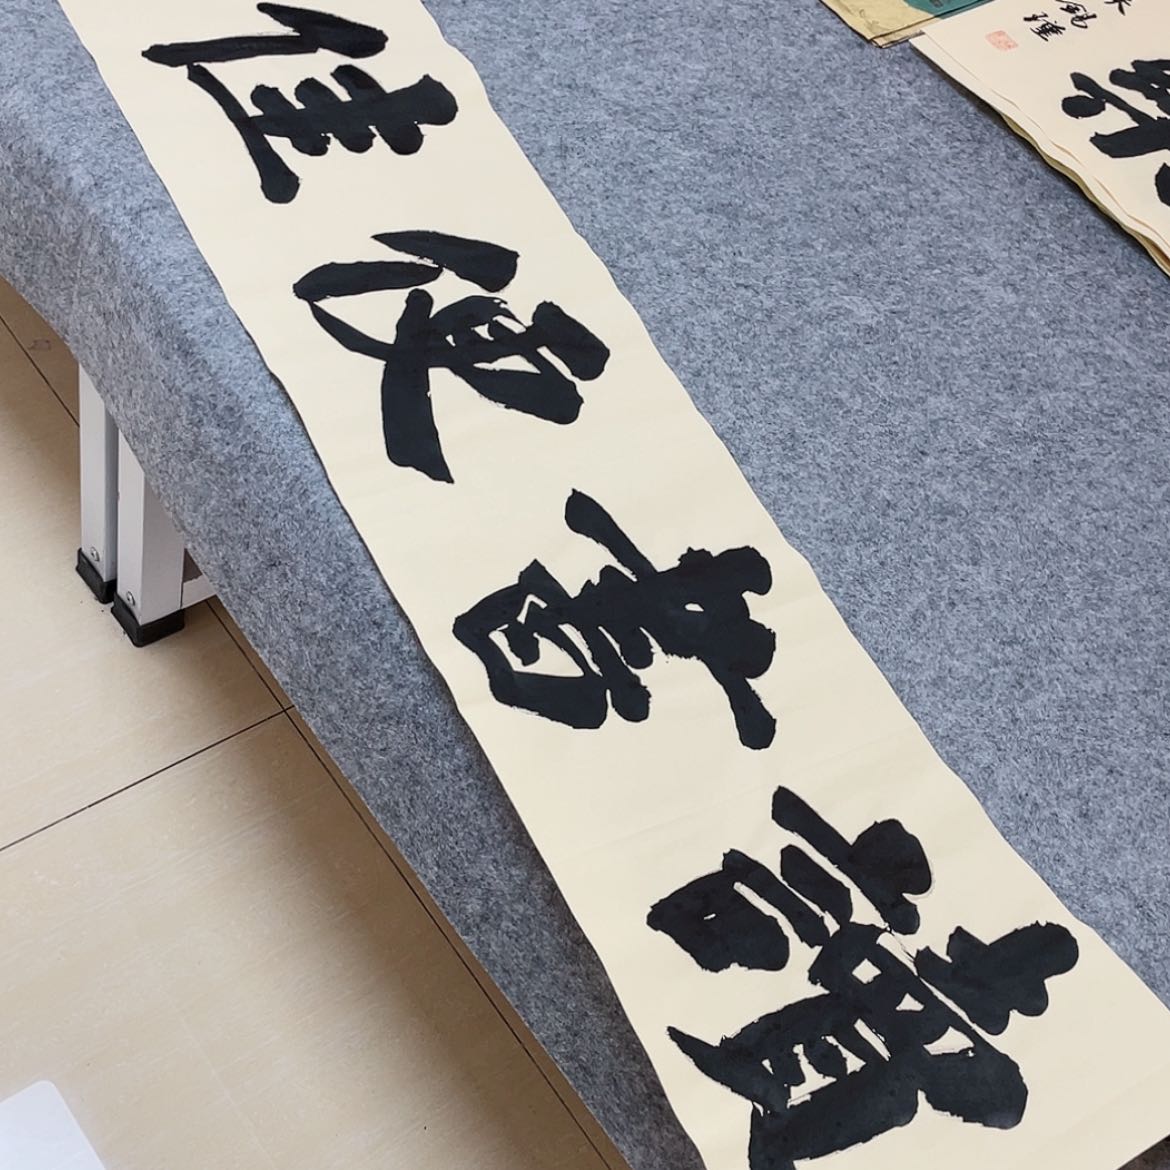 讀書便佳